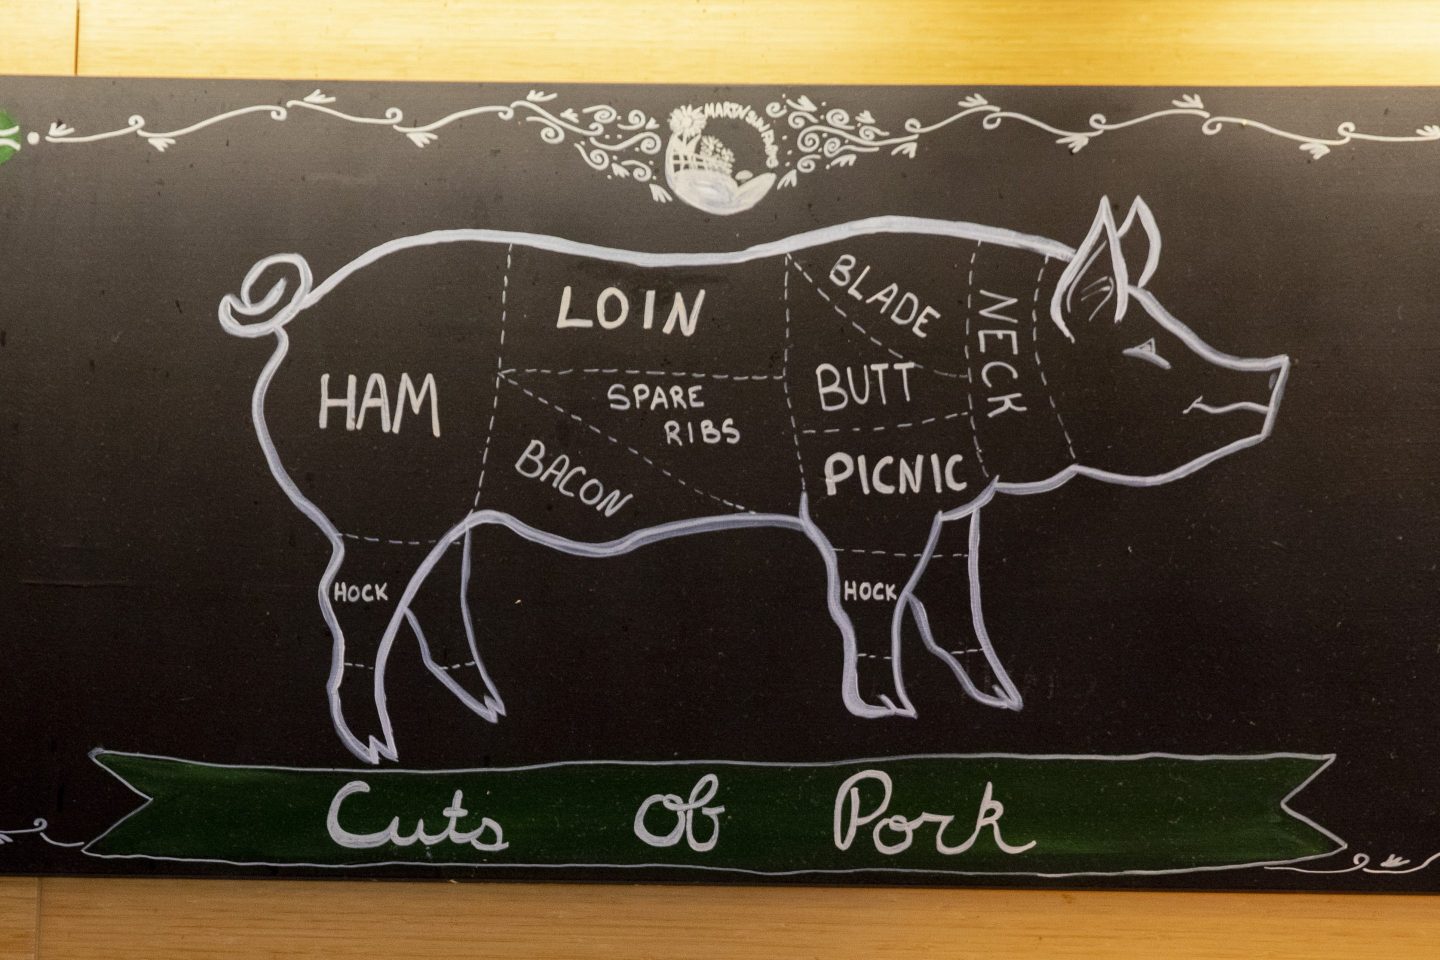 LOIN
BLADE
NECK
HAM
SPARE
RIBS
BUTT
BACON
PICNIC
HOCK
HOCK
Cuts of Pork